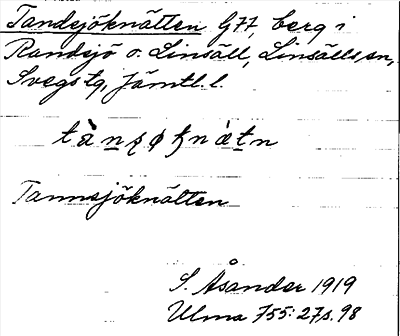 Tandsjöknätten G77, berg i
Randsjö o. Linsäll, Linsälls sn,
Svegs tg, Jämtl. l.
tànʂøknætn
Tannsjöknätten
S. Åsander 1919
Ulma 755:27 s. 98